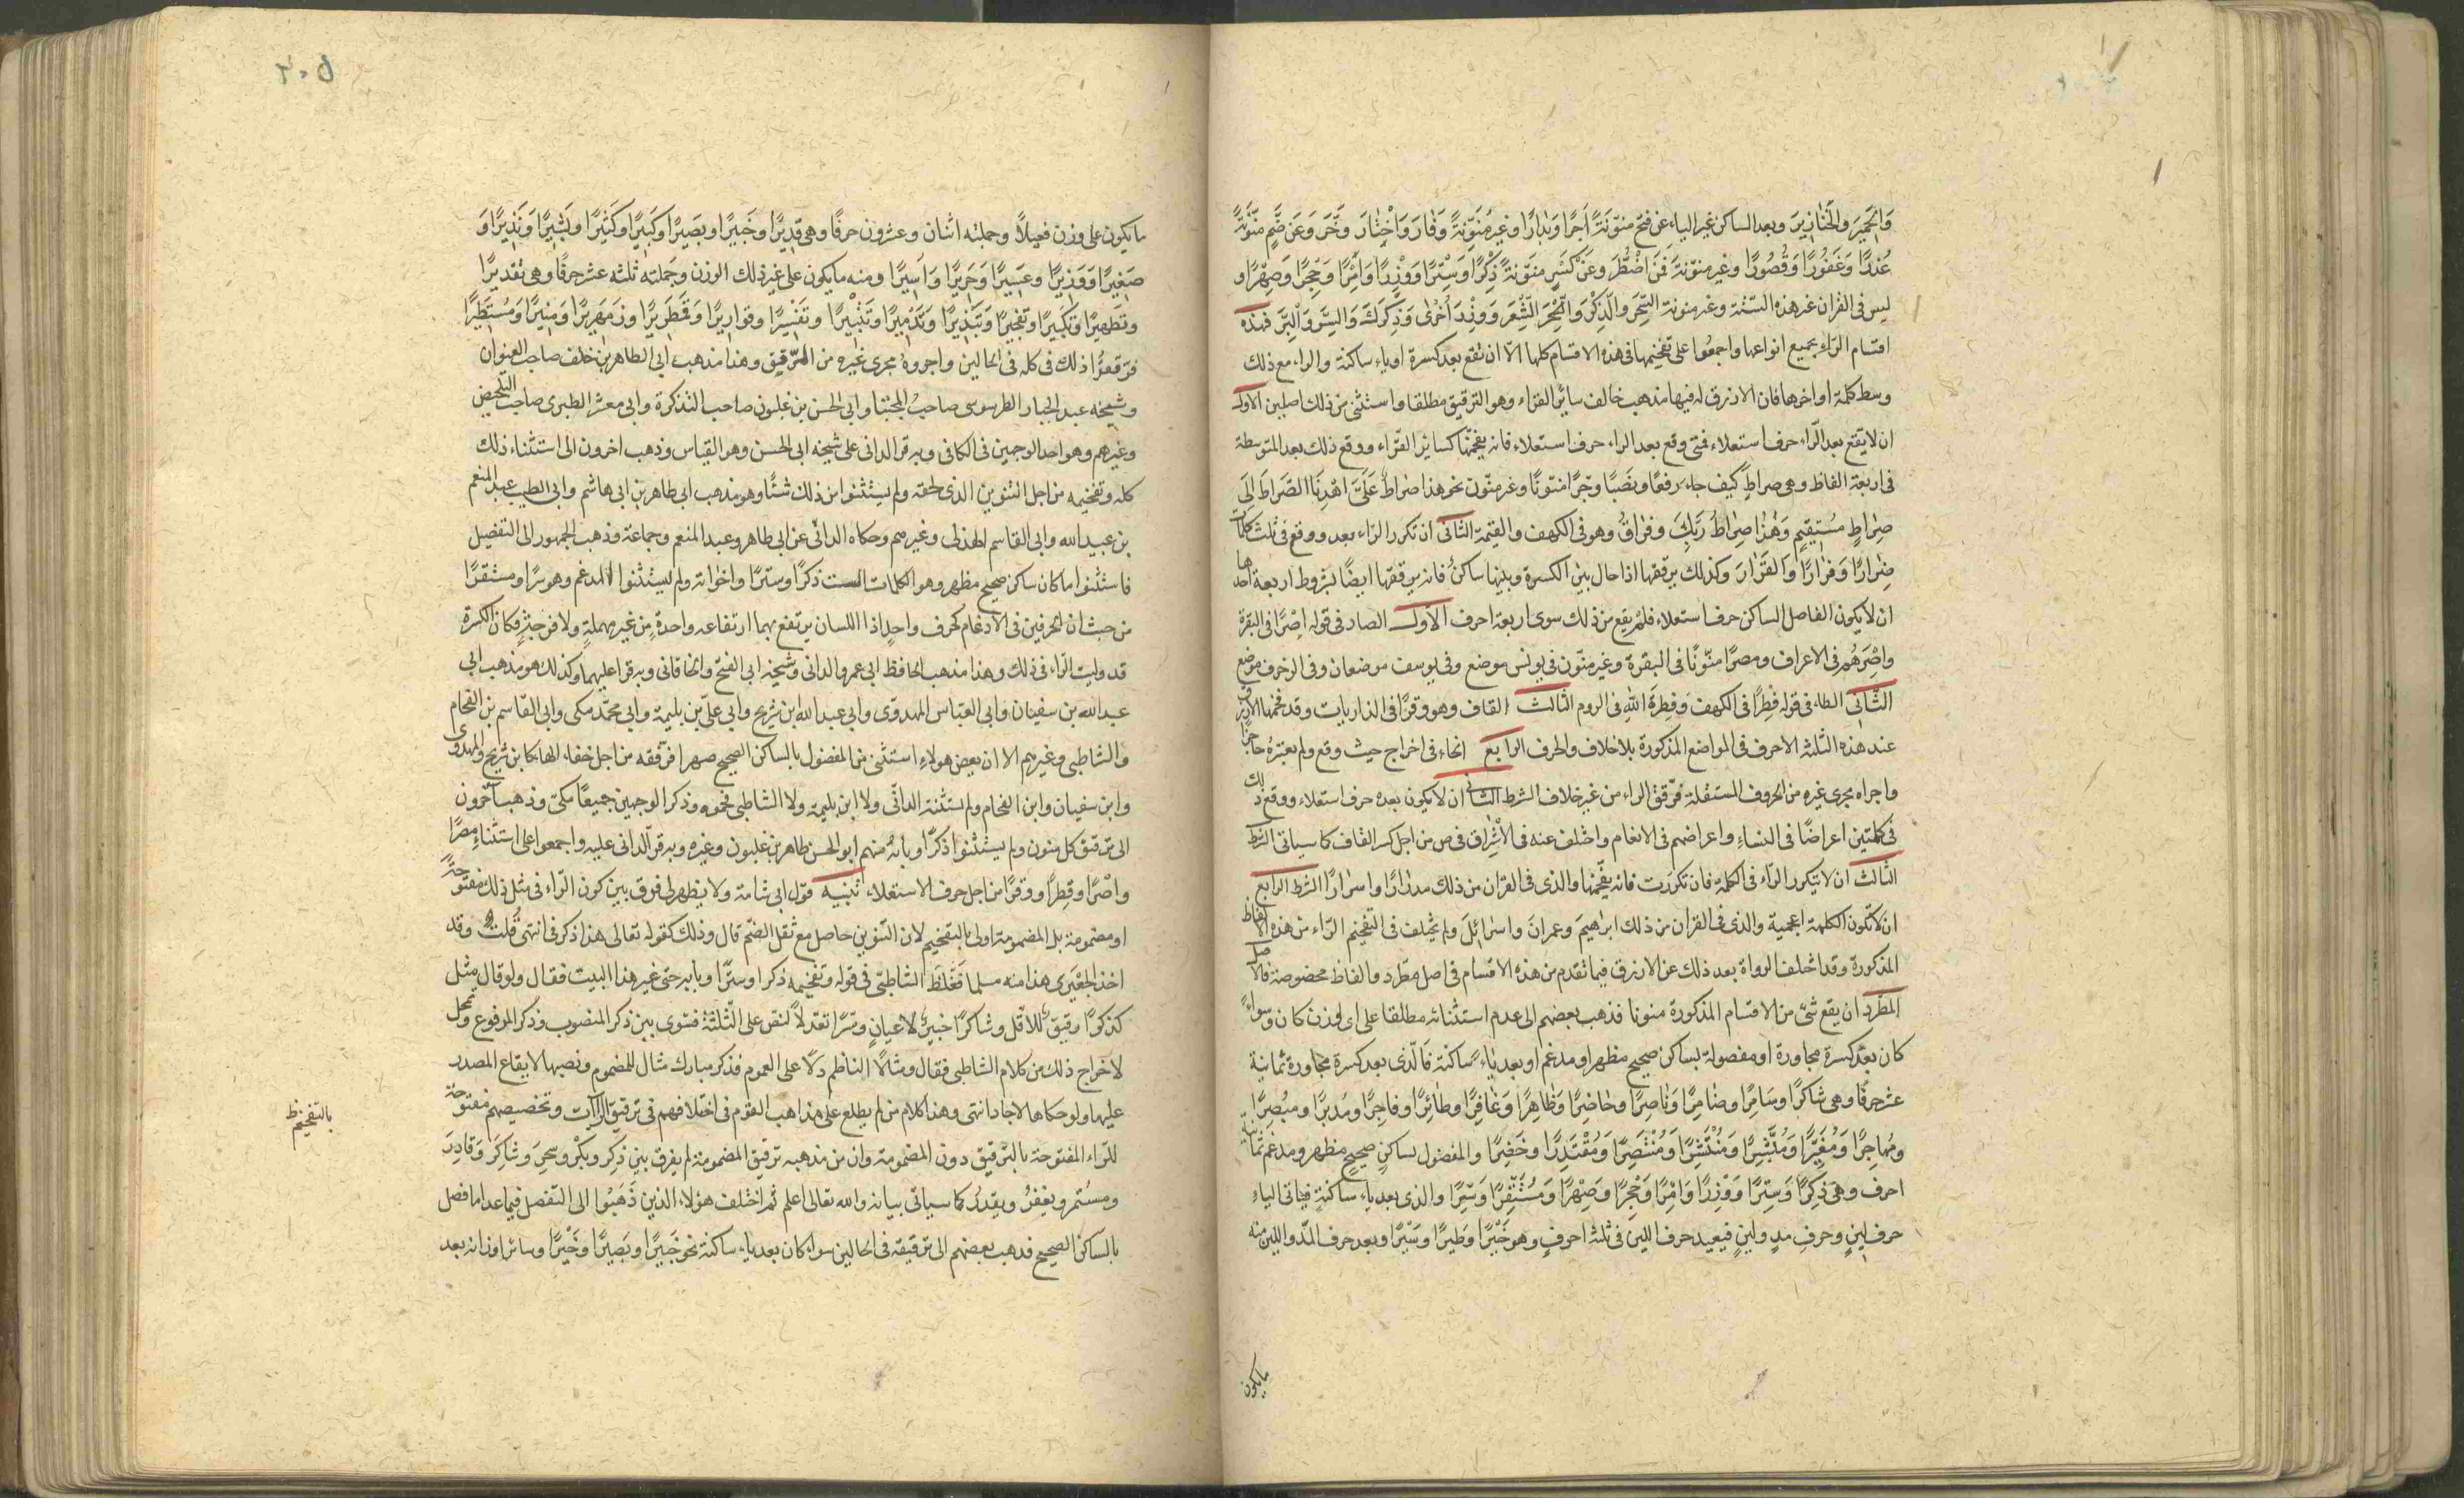 وَالْحَمِيرَ والْخَنَازِيرَ وبعد الساكن غير الياء عن فتح منوّنَةً أَجرًا وَبَدَارًا وغيرُ مُنَوّنةً وَفَارَ وَاخْتَارَ وَخَّرَ وَعَن ضَمٍّ مُنَّوَنةً
عُذرًا وَغَفُورًا وَقُصُورًا وغير منوّنةَ فَمَن اضْطُرَ وعَن كَسْرٍ منَوّنةً ذِكْرًا وَسِتْرًا وَوِزْرًا وَاَمْرًا وَحِجْرًا وَصِهْرًا و
ليس فى القران غير هذه السّتّة وغير منونة السِّحرَ والذِكْرَ وَالحِجْرَ الشِّعرَ وَوِزْرَ أُخْرٰى وَذِكْرَكَ وَالسِّرَّ وَالْبِرَّ فهذه
اقسام الرّاء بجميع انواعها واجمعُوا على تفخيمها فى هذه الاقسام كلها الّا ان تقع بعد كسرة اوياء ساكنة والراء مع ذلك
وسط كلمة اواخرها فان الازرق له فيها مذهب خالف سائر القرّاء وهو الترقيق مطلقا واستثنى من ذلك اصلين الاول
ان لا يقع بعد الرّاء حرف استعلاء فمتى وقع بعد الراء حرف استعلاء فانه يفخّمها كسائر القرّاء ووقع ذلك بعد المتوسطة
فى اربعة الفاظ وهى صراطٍ كيف جاء رفعًا ونصبًا وجرًّا منّونًا وغير منّون نحو هذا صِراطٌ عَلَىَّ اهْدِنَا الصّرَاطَ اِلى
صِرٰاطٍ مُستقيمٍ وَهٰذٰا صِرٰاطُ رَبِّكَ وفرٰاقُ وهو فى الكهف والقيمة الثّانى ان تكرر الرّاء بعد ووقع فى ثلث كلمات
ضِرٰارًا وَفِرٰارًا وَالفِرٰارَ وكذلك يرقّقها اذا حال بين الكسرة وبينها ساكنٌ فانه يرققها ايضًا بشروط اربعة احدها
ان لا يكون الفاصل الساكن حرف استعلاء فلم يقع من ذلك سوى اربعة احرف الأوّل الصاد فى قوله اِصْرًا فى البقرة
واِصْرَهُم فى الاعراف ومصرًا منّونًا فى البقرة وغير منّون فى يونس موضع وفى يوسف موضعان وفى الزخرف موضع
الثّانى الطاء فى قوله قِطْرًا فى الكهف وَفِطْرَةَ اللهِ فى الروم الثالث القاف وهو وِقرًا فى الذاريات وقد فخمها الازرق
عند هذه الثلثه الاحرف فى المواضع المذكورة بلا خلاف والحرف الرابع الخاء فى اخراج حيث وقع ولم يعتبرُهُ حاجزًا
واجراه مجرى غيره من الحروف المستفلة فرّقق الراء من غير خلاف الشرط الثانى ان لا يكون بعده حرف استعلاء ووقع ذلك
فى كلمتين اعراضًا فى النساءِ واعراضهم فى الانعام واختلف عنه فى الاِشْرَاق فى ص من اجل كسر القاف كما سياتى الشرط
الثالث ان لا يتكرر الرّاء فى الكلمة فان تكررت فانه يفخّمها والذى فى القران من ذلك مدرارًا واسرارًا الشرط الرابع
ان لا تكون الكلمة اعجمية والذى فى القران من ذلك ابراهيمَ وعمرانَ واسرائيلَ ولم يختلف فى تفخيم الرّاء من هذه الالفاظ
المذكورة وقد اختلف الرواة بعد ذلك عن الازرق فيما تقدم من هذه الاقسام فى اصل مطّرد والفاظ مخصوصة فالاصل
المطّرد ان يقع شئ من الاقسام المذكورة منونا فذهب بعضهم الى عدم استثنائه مطلقا على اى وزن كان وسواءً
كان بعد كسرة مجاورة او مفصولة بساكن صحيح مظهر او مدغم او بعد ياءٍ ساكنة فالّذى بعد كسرة مجاورة ثمانية
عشر حرفًا وهى شاكرًا وسَامِرًا وصَابِرًا وَنَاصِرًا وحَاضِرًا وَظَاهِرًا وَعَاقِرًا وطَائِرًا وفاجرًا ومُدبرًا ومبُصِرًا
ومُهاجِرًا وَمُغَيّرًا وَمُبَشِّرًا وَمُنْتَشِرًا وَمُنْتَصِرًا وَمُقْتَدِرًا وخَضِرًا والمفصول بساكنٍ صحيح مظهر ومدغم ثمانية
احرف وهى ذِكرًا وَسِترًا وَوِزرًا وَاِمرًا وَحِجرًا وَصِهرًا وَمُسْتَقِرًا وَسِرًّا والذى بعد ياء ساكنة فياتى الياء
حرف لينٍ وحرف مدٍ ولينٍ فبعد حرف اللين فى ثلثة احرفٍ وهو خَيْرًا وَطَيرًا وَسَيْرًا وبعد حرف المدّ واللين منه
ما يكون
٢٠٥
ما يكون على وزن فعيلاً وجملته اثنان وعشرون حرفًا وهى قَدِيرًا وخَبيرًا وبصيرًا وكَبيرًا وكَثيرًا وَبَشِيرًا وَنَذيرًا وَ
صَغيرًا وَوَزيرًا وعَسيرًا وَحَريرًا وَاَسيرًا ومنه ما يكون على غير ذلك الوزن وجملته ثلثه عشر حرفًا وهى تقديرًا
وتطهيرًا وتَكبيرًا وتفجيرًا وَتبذيرًا وَتَدْميرًا وَتَتْبيرًا وتفسيرًا وقواريرًا وَقَمطَريرًا وزمهَريرًا وَمنيرًا وَمُسْتَطيرًا
فرّققوُا ذلك فى كله فى الحالين واجروهُ مجرى غيره من المرّقيق وهذا مذهب ابى الطاهر بن خلف صاحب العنوان
وشيخه عبد الجبار الطرسوسى صاحبُ المجتبا وابى الحسن بن غلبون صاحب التذكرة وابى معشر الطبرى صاحب التلخيص
وغيرهم وهو احد الوجهين فى الكافى وبه قرا الدانى على شيخه ابى الحسن وهو القياس وذهب اخرون الى استثناء ذلك
كله وتفخيمه من اجل التنوين الذى لحقه ولم يستثنوا من ذلك شئًا وهو مذهب ابى طاهر بن ابى هاشم وابى الطيب عبد المنعم
بن عبيد الله وابى القاسم الهذلى وغيرهم وحكاه الدانّى عن ابى طاهر وعبد المنعم وجماعة وذهب الجمهور الى التفصيل
فاستثنوا ما كان ساكن صحيح مظهر وهو الكلمات الست ذكرًا وسترًا واخواته ولم يستثنوا المدغم وهو سرًا ومستقرًا
من حيث ان الحرفين فى الادغام كحرف واحدٍ اذا اللسان يرتفع بهما ارتفاعه واحدةٍ من غير مهلةٍ ولا فرجةٍ فكان الكسرة
قد وليت الرّاء فى ذلك وهذا مذهب الحافظ ابى عمرو الدانى وشيخيه ابى الفتح والخاقانى وبه قرا عليهما وكذلك هو مذهب ابى
عبد الله بن سفيان وابى العبّاس المهدوّى وابى عبد الله ابن شريح وابى علىّ بن بليمة وابى محمّد مكى وابى القاسم بن الفحام
والشاطبى وغيرهم الا ان بعض هولاءِ استثنى من المفصول بالساكن الصحيح صهرا فرقّقه من اجل خفاء الهاء كابن شريح والمهدوى
وابن سفيان وابن الفحام ولم يستثنه الدانّى ولا ابن بليمة ولا الشاطبى ففخموه وذكر الوجهين جميعًا مكىّ وذهب اخرون
الى ترقيق كل منون ولم يستثنوا ذكرًا وبابه منهم ابو الحسن طاهر بن غلبون وغيره وبه قرا الدانى عليه واجمعوا على استثناء مصرًا
واصْرًا وقِطرًا ووقرًا من اجل حرف الاستعلاء تنبيه قول ابى شامة ولا يظهر لى فرق بين كون الرّاء فى مثل ذلك مفتوحةً
او مضمومة بل المضمومة اولى بالتفخيم لان التّنوين حاصل مع ثقل الضمّ قال وذلك كقوله تعالى هذا ذكر فى انتهى قُلت وقد
اخذ الجَعْبَرى هذا منه مسلما فَغَلَّطَ الشاطبّى فى قوله وتفخيمه ذكرا وسترًا وبابه حتى غير هذا البيت فقال ولو قال مثل
كذكرًا رقيقٌ للاقّل وشاكرًا خبيرٌ لاعيانٍ وسِرًا تعدّلاً لنص على الثلثة فسوى بين ذكر المنصوب وذكر المرفوع وتمحل
لاخراج ذلك من كلام الشاطبى فقال ومثالا النّاظم دلّا على العموم فذكر مبارك مثال للمضموم ونصبها لايقاع المصدر
عليهما ولو حكاها لاجاد انتهى وهذا كلام من لم يطلع على مذاهب القوم فى اختلافهم فى ترقيق الراآت وتخصيصهم مفتوحة
للرّاء المفتوحة بالترقيق دون المضمومة وان من مذهبه ترقيق المضمومة لم يفرق بين ذِكر وبكْر وسحرَ وشاكِرَ وَقادِرَ
ومسُتمر ويغفِرُ ويقدِرُ كما سياتى بيانه والله تعالى اعلم ثم اختلف هؤلاء الذين ذَهَبُوا الى التفصيل فيما عدا ما فصل
بالساكن الصحيح فذهب بعضهم الى ترقيقه فى الحالين سواء كان بعد ياء ساكنة نحو خَبيرًا وبَصِيرًا وخَيْرًا وسائر اوزانه بعد
بالتفخيم ظ